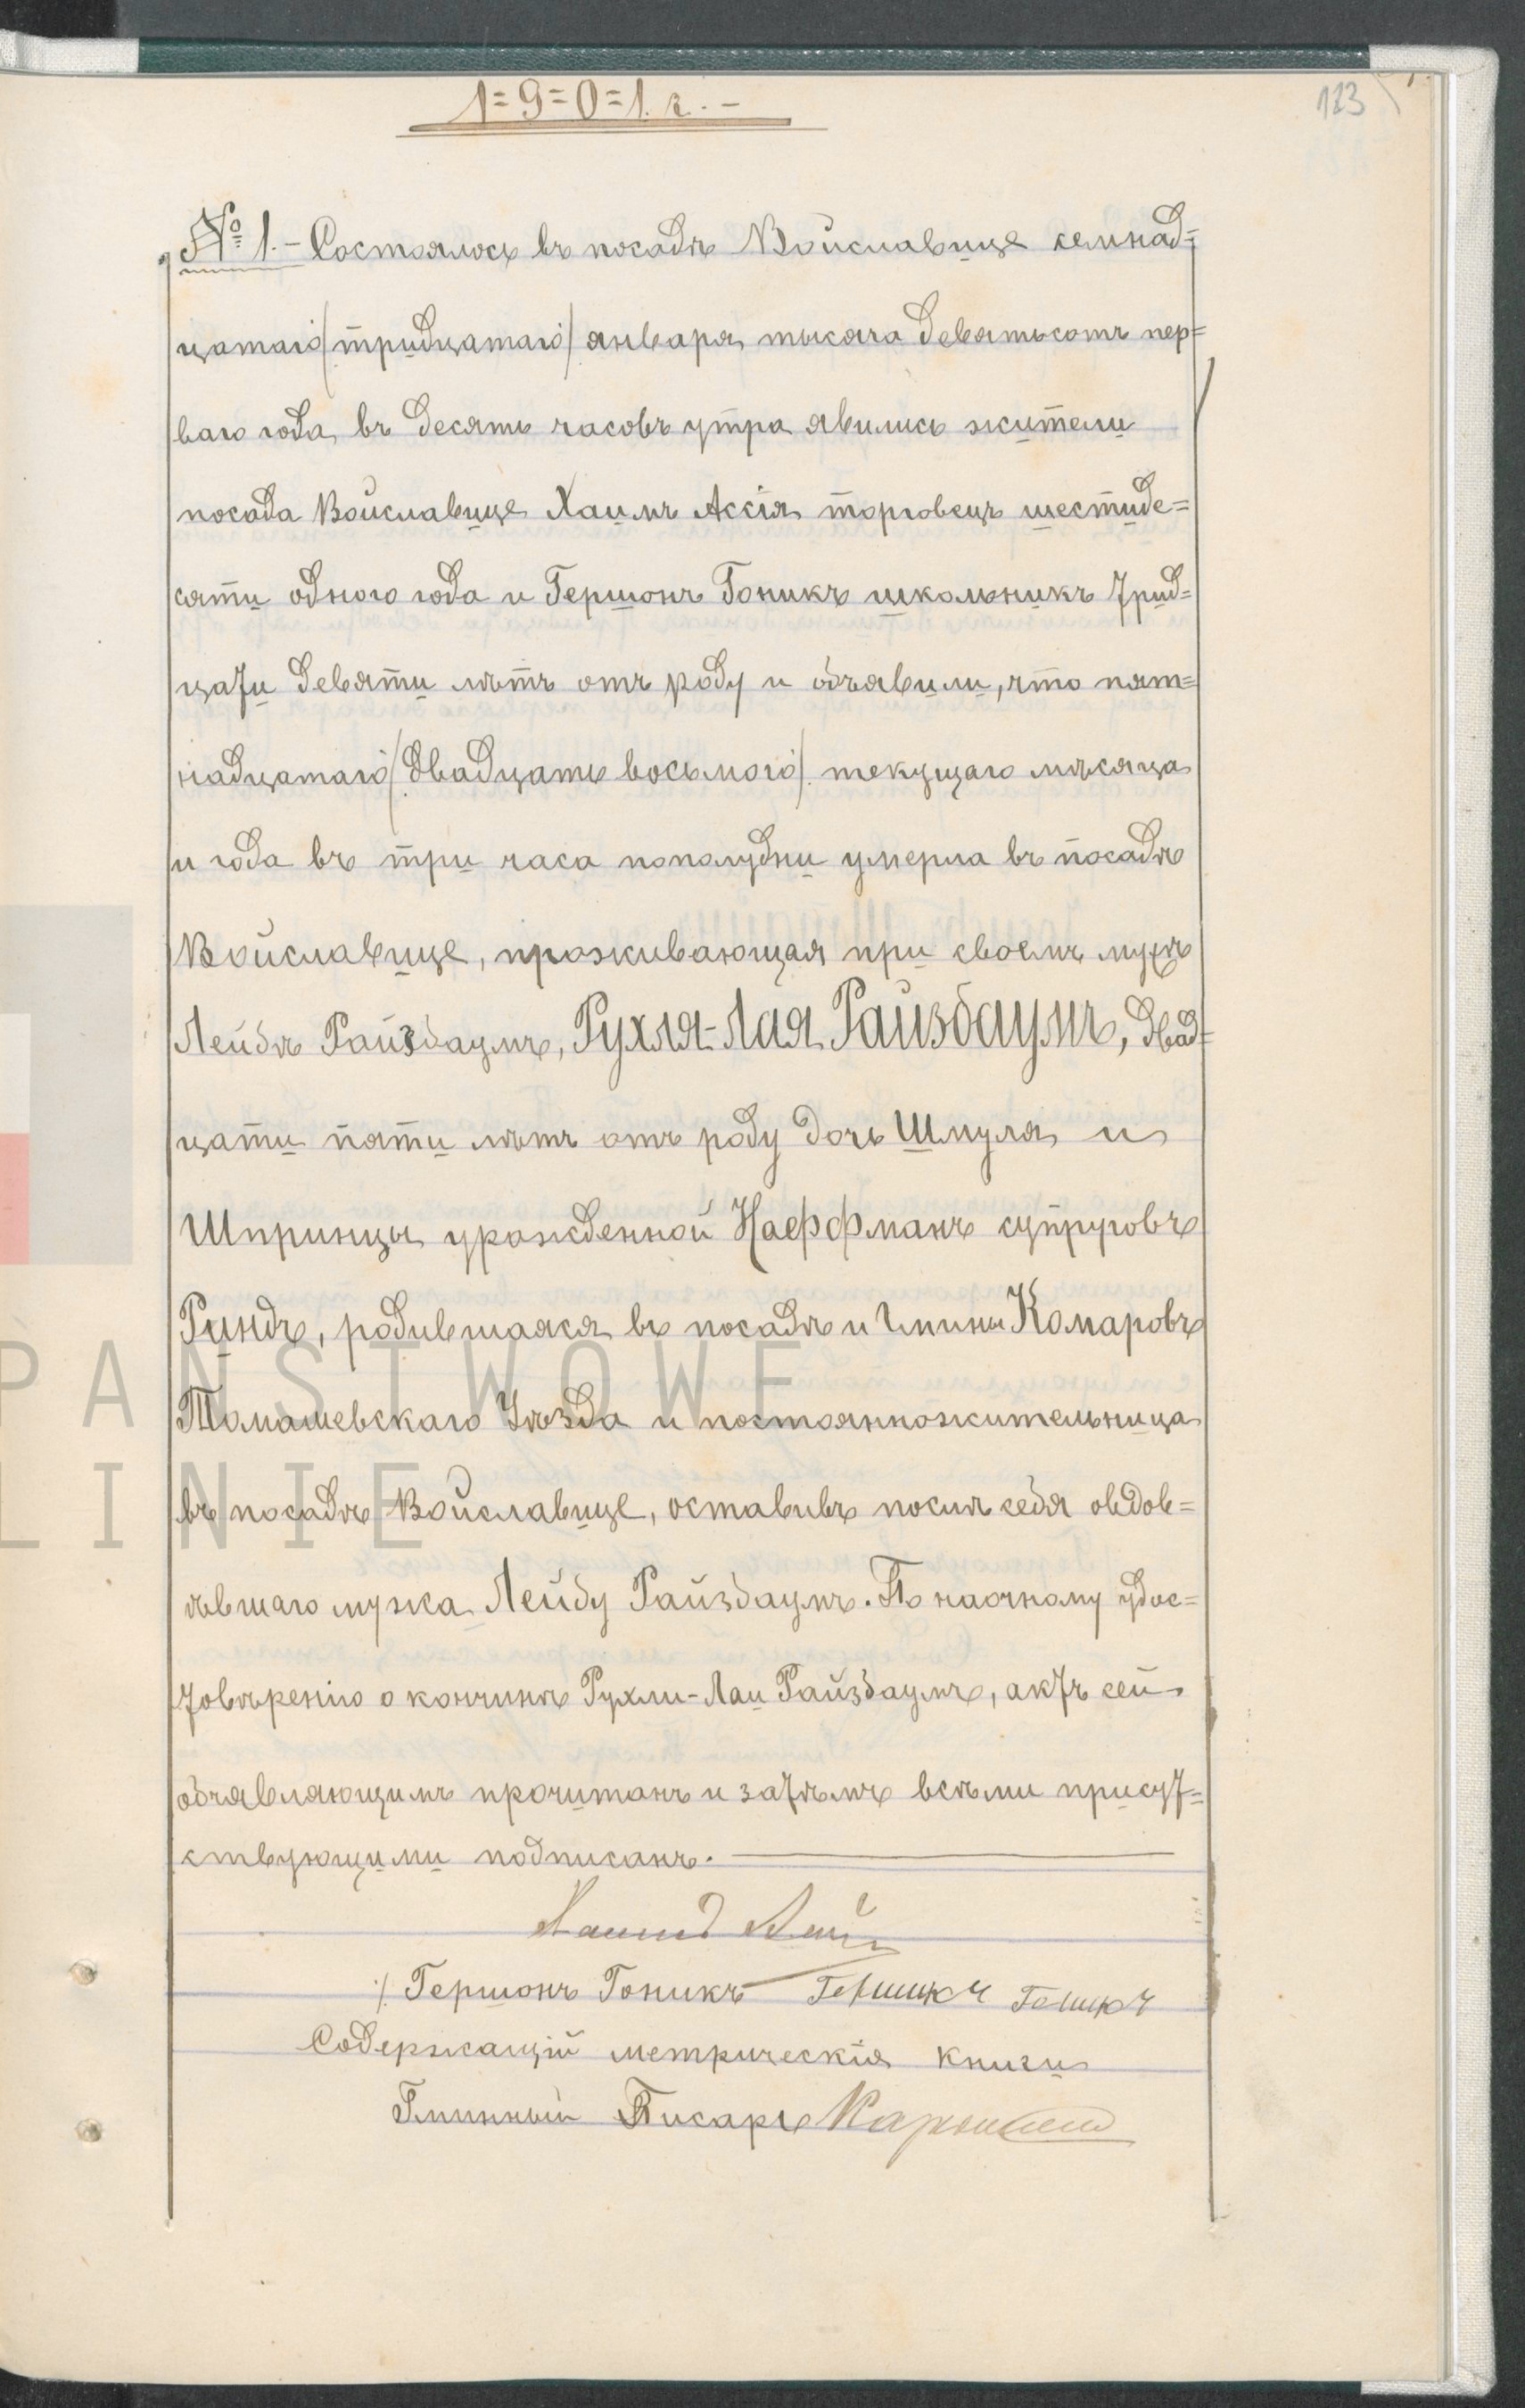 1=9=0=1. г. -
123
№ 1. - Состоялось въ посадѣ Войславице семнад=
цатаго /тридцатаго/ января тысяча девятьсотъ пер=
ваго года, въ десять часовъ утра явились жители
посада Войславице Хаимъ Ассія торговецъ шестиде=
сяти одного года и Гершонъ Гоникъ школьникъ трид=
цати девяти лѣтъ отъ роду и объявили, что пят=
надцатаго /двадцать восьмого/ текущаго мѣсяца
и года въ три часа пополудни умерла въ посадѣ
Войславице, проживающая при своемъ мужѣ
Лейбѣ Райзбаумъ, Рухля-Лая Райзбаумъ, двад=
цати пяти лѣтъ отъ роду дочь Шмуля и
Шпринцы урожденной Наеффманъ супруговъ
Риндъ, родившаяся въ посадѣ и Гмины Комаровъ
Томашевскаго Уѣзда и постоянножительница
въ посадѣ Войславице, оставивъ послѣ себя овдов=
ѣвшаго мужа Лейбу Райзбаумъ. По наочному удос=
товѣренію о кончинѣ Рухли-Лаи Райзбаумъ, актъ сей
объявляющимъ прочитанъ и затѣмъ всѣми присут=
ствующими подписанъ.
/ Гершонъ Гоникъ Гоникъ
Содержащій метрическія книги
Гминный Писарь
PAŃSTWOWE
LINIE